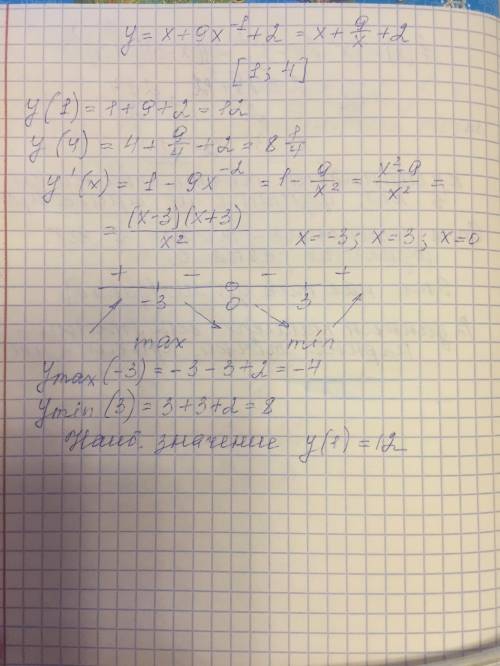 y = x + 9x⁻¹ + 2 = x + 9/x + 2
[1; 4]
y(1) = 1 + 9 + 2 = 12
y(4) = 4 + 9/4 + 2 = 8 1/4
y'(x) = 1 - 9x⁻² = 1 - 9/x² = x²-9/x² =
= (x-3)(x+3)/x² x = -3; x = 3; x = 0
+ - - +
-3 0 3
max min
y max (-3) = -3 - 3 + 2 = -4
y min (3) = 3 + 3 + 2 = 8
Наиб. значение y(1) = 12